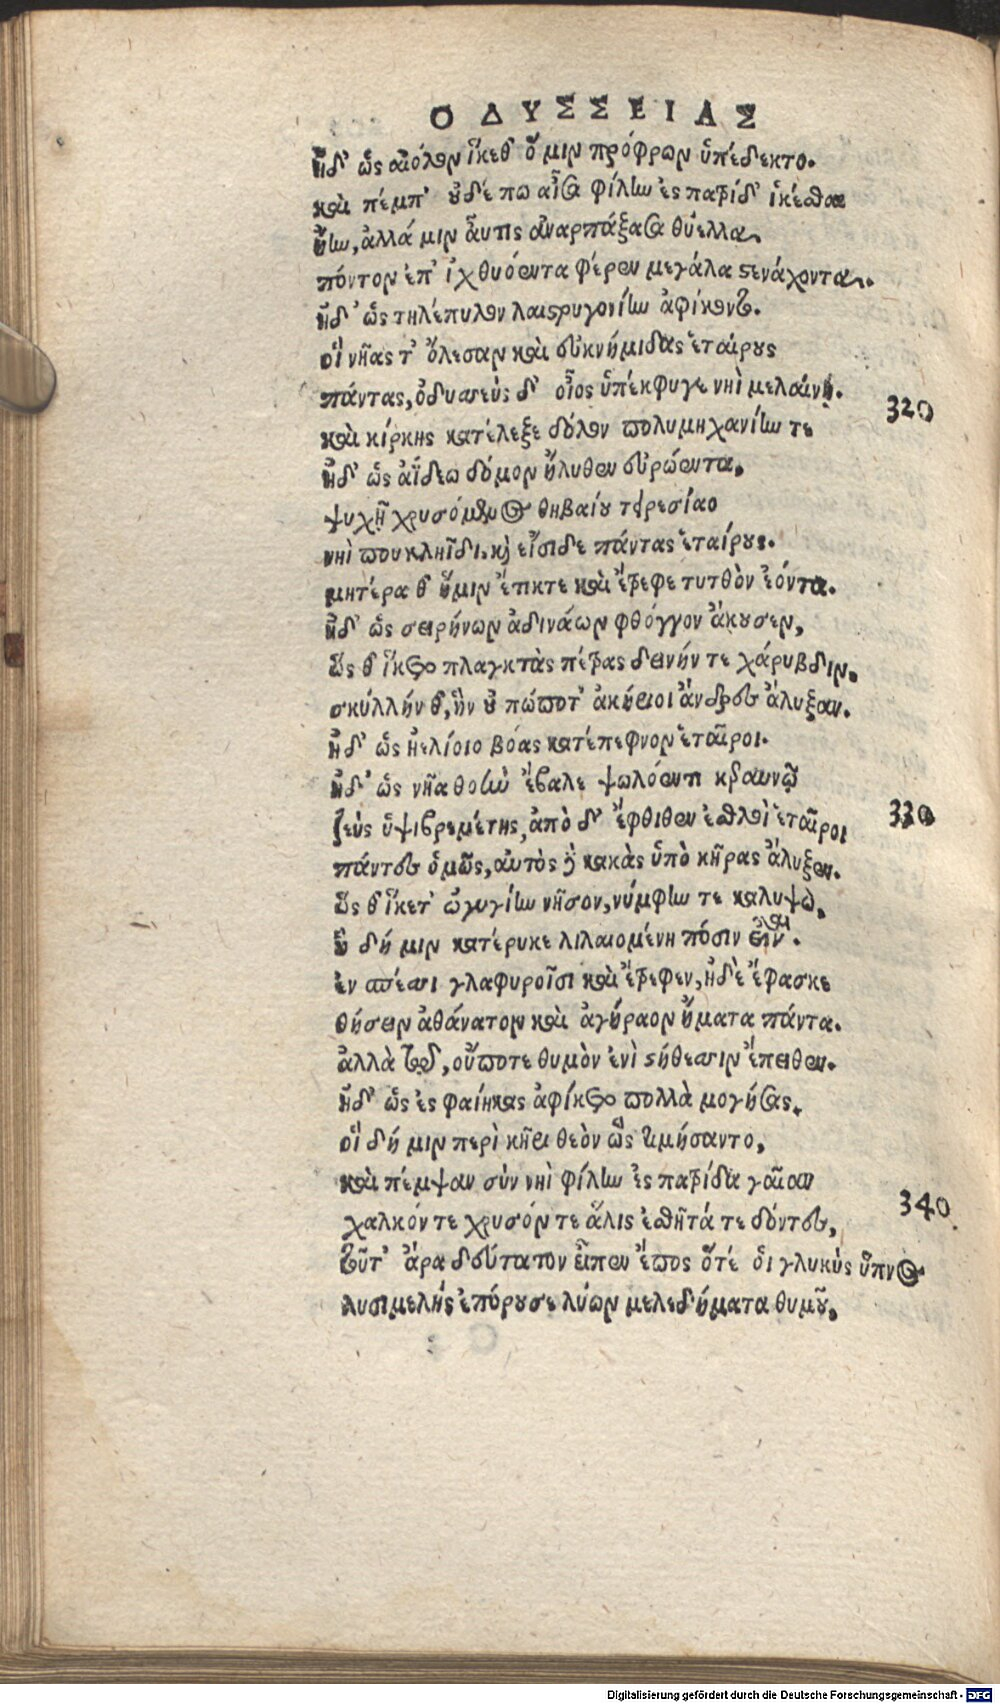 ΟΔΥΣΣΕΙΑΣ
ἠδ' ὡς αἰόλον ἵκεθ' ὅ μιν πρόφρων ὑπέδεκτο.
καὶ πέμπ' οὐδέ πω αἶσα φίλην ἐς πατρίδ' ἱκέσθαι
ἤην, ἀλλά μιν αὖτις ἀναρπάξασα θύελλα,
πόντον ἐπ' ἰχθυόεντα φέρεν μεγάλα στενάχοντα.
ἠδ' ὡς τηλέπυλον λαιστρυγονίην ἀφίκανεν.
οἳ νῆας τ' ὄλεσαν καὶ εὐκνήμιδας ἑταίρους
πάντας, ὀδυσσεὺς δ' οἶος ὑπέκφυγε νηὶ μελαίνῃ.
320
καὶ κίρκης κατέλεξε δόλον πολυμηχανίην τε
ἠδ' ὡς ἀΐδεω δόμον ἤλυθεν εὐρώεντα,
ψυχῇ χρησόμενος θηβαίου τειρεσίαο
νηὶ πολυκληῗδι. καὶ εἴσιδε πάντας ἑταίρους.
μητέρα θ' ἥ μιν ἔτικτε καὶ ἔτρεφε τυτθὸν ἐόντα.
ἠδ' ὡς σειρήνων ἀδινάων φθόγγον ἄκουσεν,
ὥς θ' ἵκετο πλαγκτὰς πέτρας δεινήν τε χάρυβδιν,
σκύλλην θ', ἣν οὐ πώποτ' ἀκήριοι ἄνδρες ἄλυξαν.
ἠδ' ὡς ἠελίοιο βόας κατέπεφνον ἑταῖροι.
ἠδ' ὡς νῆα θοὴν ἔβαλε ψολόεντι κεραυνῷ
ζεὺς ὑψιβρεμέτης, ἀπὸ δ' ἔφθιθεν ἐσθλοὶ ἑταῖροι
330
πάντες ὁμῶς, αὐτὸς δὲ κακὰς ὑπὸ κῆρας ἄλυξεν.
ὥς θ' ἵκετ' ὠγυγίην νῆσον, νύμφην τε καλυψώ,
ἣ δή μιν κατέρυκε λιλαιομένη πόσιν εἶναι.
ἐν σπέσσι γλαφυροῖσι καὶ ἔτρεφεν, ἠδὲ ἔφασκε
θήσειν ἀθάνατον καὶ ἀγήραον ἤματα πάντα.
ἀλλὰ τοῦ, οὔποτε θυμὸν ἐνὶ στήθεσσιν ἔπειθεν.
ἠδ' ὡς ἐς φαίηκας ἀφίκετο πολλὰ μογήσας.
οἳ δή μιν περὶ κῆρι θεὸν ὣς τιμήσαντο,
καὶ πέμψαν σὺν νηὶ φίλην ἐς πατρίδα γαῖαν
χαλκόν τε χρυσόν τε ἅλις ἐσθῆτά τε δόντες,
340
τοῦτ' ἄρα δεύτατον εἶπεν ἔπος ὅτέ οἱ γλυκὺς ὕπνος
λυσιμελὴς ἐπόρουσε λύων μελεδήματα θυμοῦ.
Digitalisierung gefördert durch die Deutsche Forschungsgemeinschaft - DFG